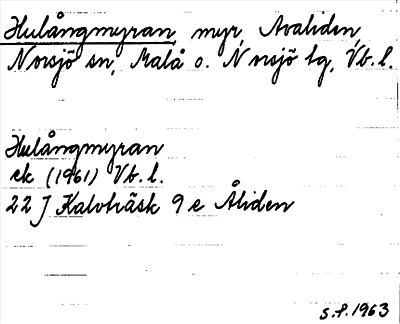 Hulångmyran, myr, Avaliden,
Norsjö sn, Malå o. Norsjö tg, Vb. l.
Hulångmyran
ek (1961) Vb. l.
22 J Kalvträsk 9 e Åliden
S.P. 1963